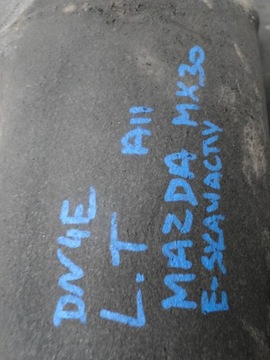 DN4E
L.T A11
MAZDA MX30
E-SKAVACTIV